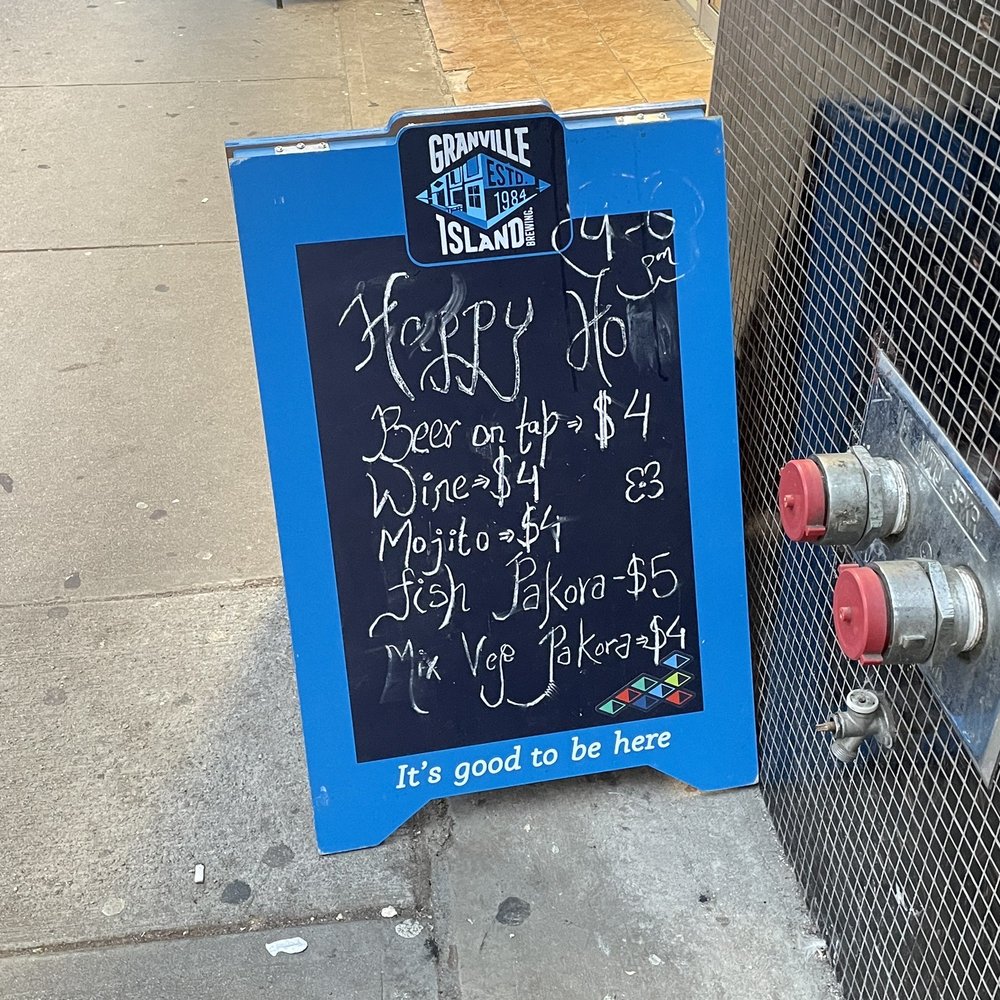 GRANVILLE
ESTD.
1984
ISLAND
BREWING.
4-6
pm
Happy Ho
Beer on tap ⇒ $4
Wine ⇒ $4
Mojito ⇒ $4
fish Pakora - $5
Mix Vege Pakora ⇒ $4
It's good to be here